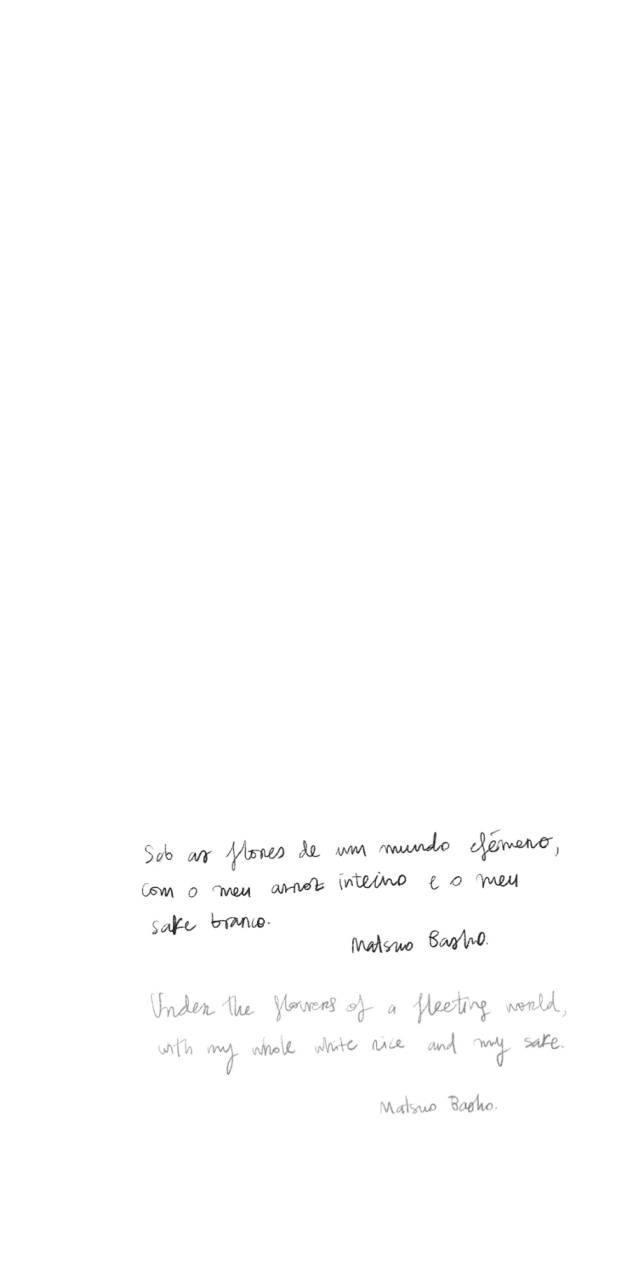 Sob as flores de um mundo efémero,
com o meu arroz inteiro e o meu
sake branco.
Matsuo Basho.
Under the flowers of a fleeting world,
with my whole white rice and my sake.
Matsuo Basho.